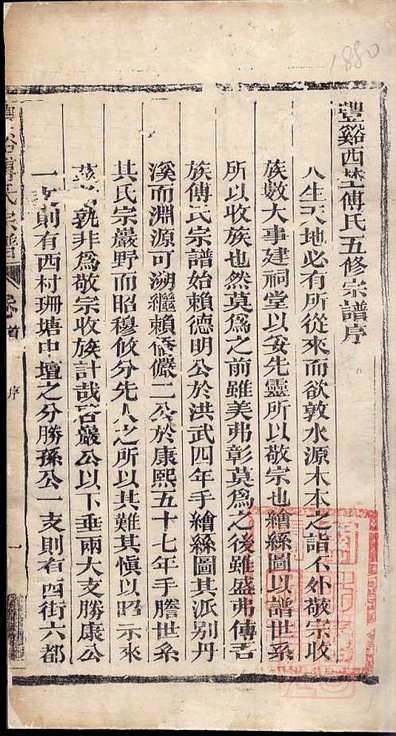 1880
豐谿西塋傅氏五修宗譜序
人生天地必有所從來而欲敦水源木本之誼不外敬宗收
族數大事建祠堂以妥先靈所以敬宗也繪絲圖以譜世系
所以收族也然莫為之前雖美弗彰莫為之後雖盛弗傳吾
族傅氏宗譜始賴德明公於洪武四年手繪絲圖其派別丹
溪而淵源可溯繼賴儒二公於康熙五十七年手謄世系
其氏宗嚴野而昭穆攸分先人之所以其難其慎以昭示來
孰非為敬宗收族計哉啓嚴公以下垂兩大支勝康公
一支則有西村珊塘中壇之分勝孫公一支則有西街六都
序
一